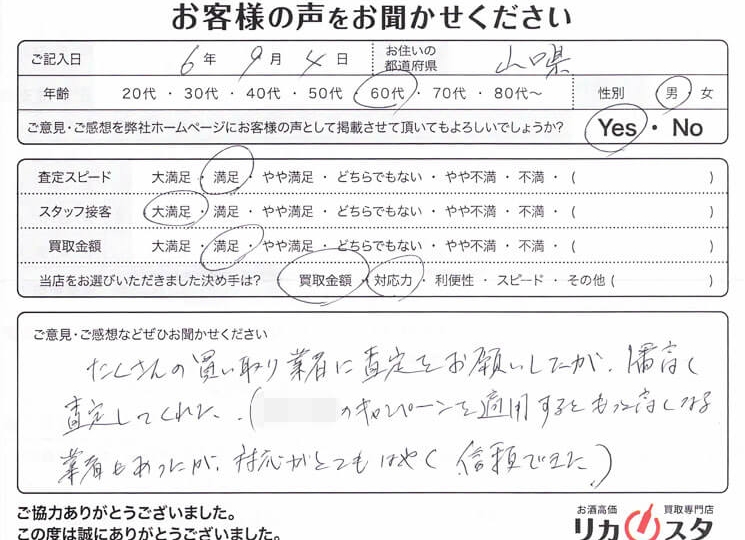 お客様の声をお聞かせください
ご記入日 6年 9月 4日 お住いの都道府県 山口県
年齢 20代・30代・40代・50代・60代・70代・80代～ 性別 男・女
ご意見・ご感想を弊社ホームページにお客様の声として掲載させて頂いてもよろしいでしょうか? Yes・No
査定スピード 大満足・満足・やや満足・どちらでもない・やや不満・不満・( )
スタッフ接客 大満足・満足・やや満足・どちらでもない・やや不満・不満・( )
買取金額 大満足・満足・やや満足・どちらでもない・やや不満・不満・( )
当店をお選びいただきました決め手は? 買取金額・対応力・利便性・スピード・その他( )
ご意見・ご感想などぜひお聞かせください
たくさんの買い取り業者に査定をお願いしたが、1番高く
査定してくれた。(のキャンペーンを適用するともっと高くなる
業者もあったが、対応がとてもはやく信頼できた)
ご協力ありがとうございました。
この度は誠にありがとうございました。
お酒高価 買取専門店
リカスタ